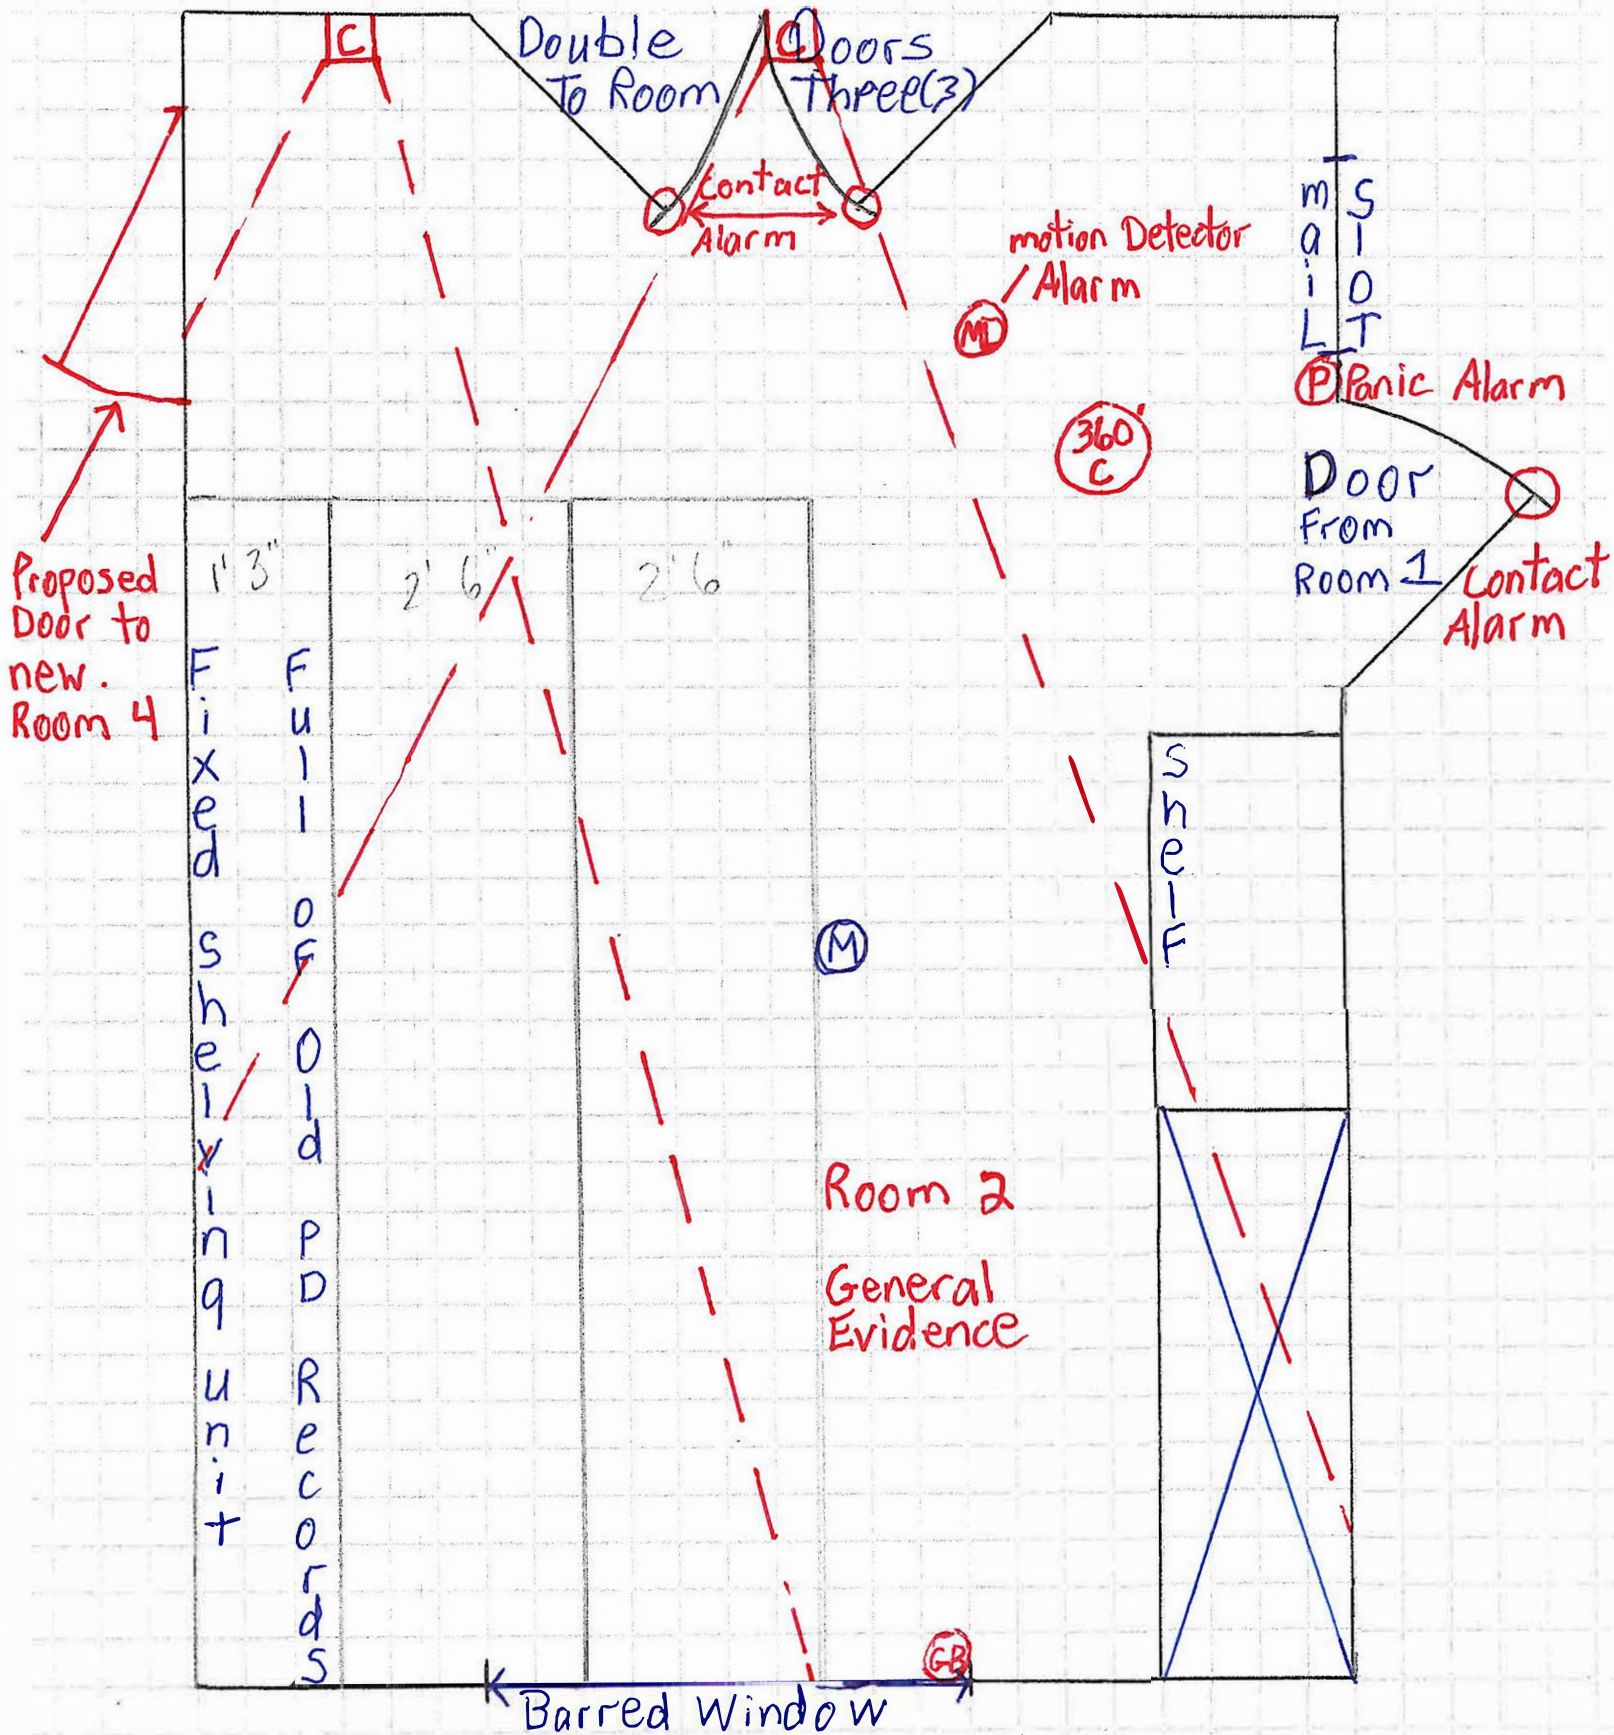 C
Double
To Room
C
Doors
Three(3)
Contact
Alarm
motion Detector
Alarm
MD
maiL
SlOT
P
Panic Alarm
360°
C
Door
From
Room 1
Contact
Alarm
Proposed
Door to
new.
Room 4
1' 3"
2' 6"
2' 6"
Fixed Shelving unit
Full oF Old PD Records
ShelF
M
Room 2
General
Evidence
GB
Barred Window